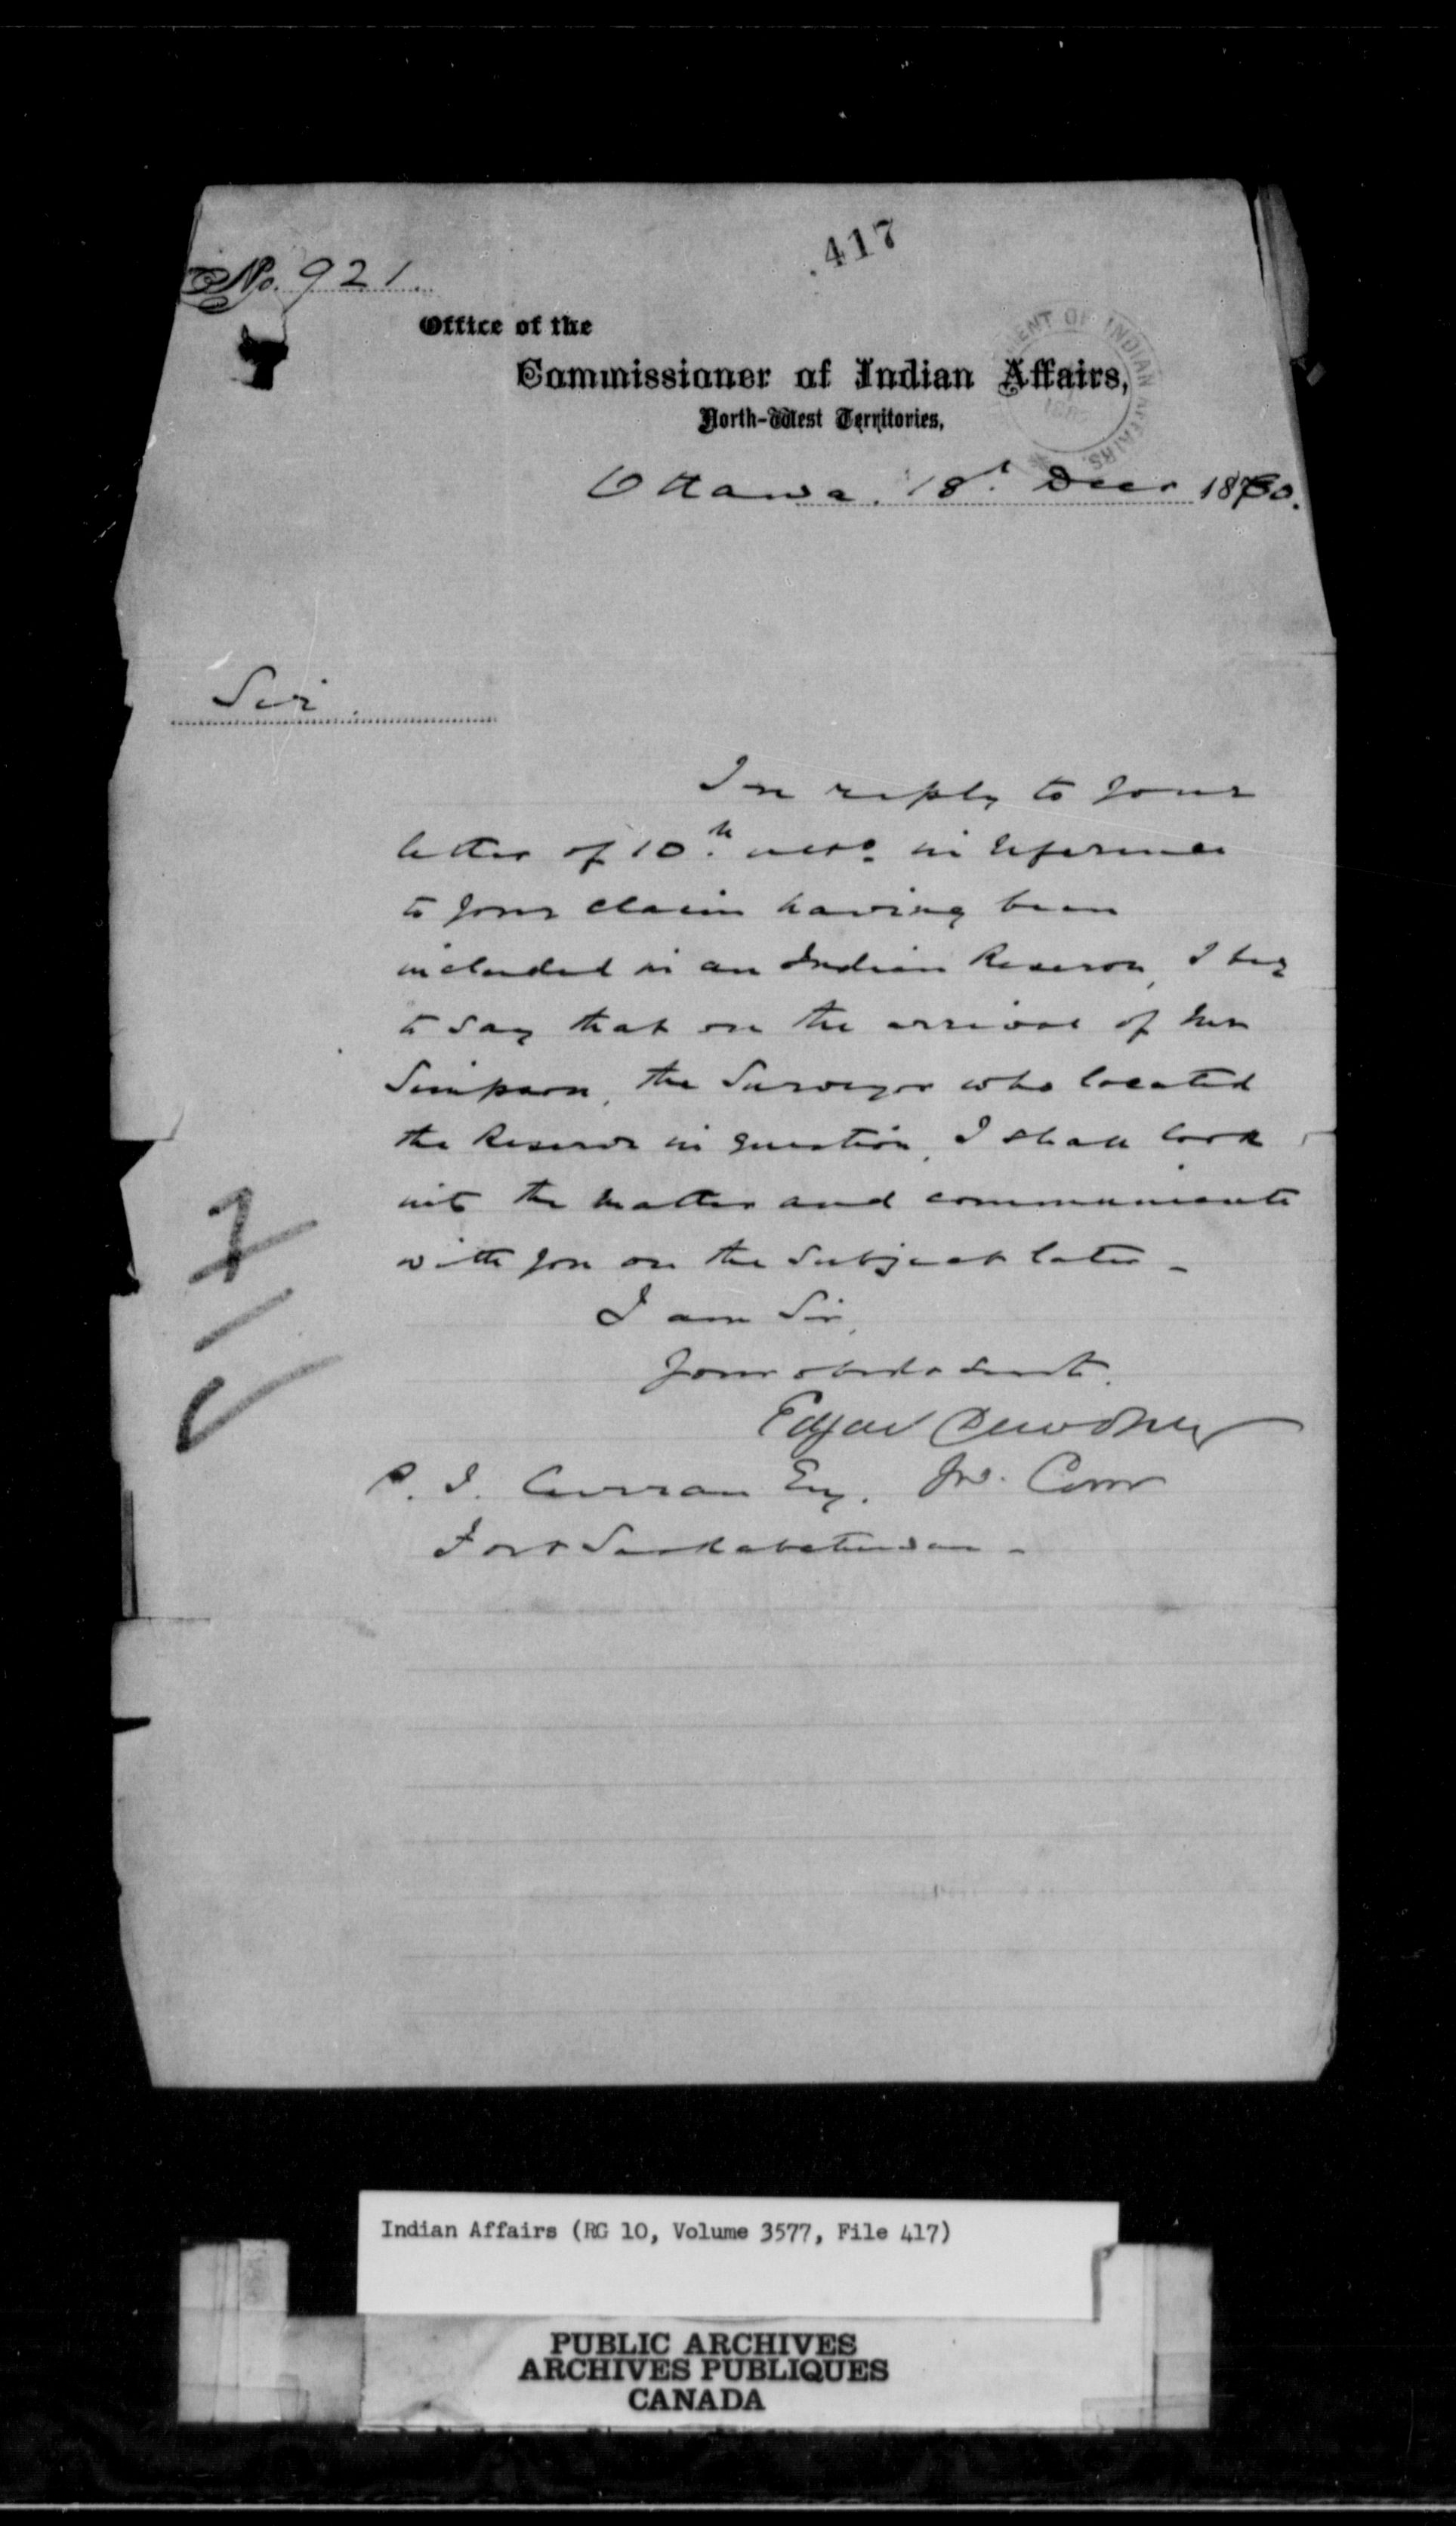 417
No. 921.
Office of the
Commissioner of Indian Affairs,
North-West Territories,
MENT OF INDIAN AFFAIRS.
Ottawa. 18th Decr 1880.
Sir
In reply to your
letter of 10th ulto in reference
to your claim having been
included in an Indian Reserve, I beg
to say that on the arrival of Mr
Simpson, the Surveyor who located
the Reserve in question, I shall look
into the matter and communicate
with you on the subject later -
I am Sir,
Your obedt Servt.
Edgar Dewdney
P. I. Curran Esq. In. Comr
Fort Saskatchewan -
Indian Affairs (RG 10, Volume 3577, File 417)
PUBLIC ARCHIVES
ARCHIVES PUBLIQUES
CANADA